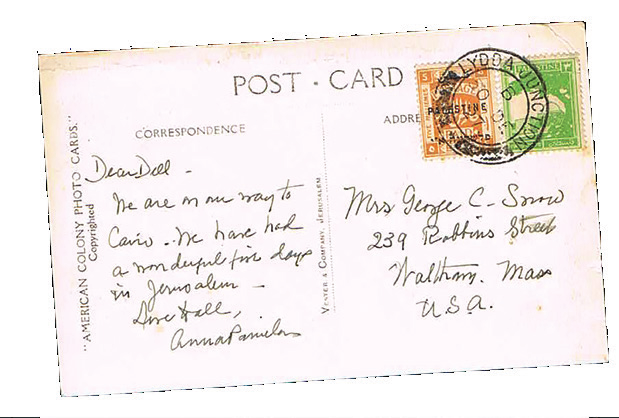 POST - CARD
"AMERICAN COLONY PHOTO CARDS."
Copyrighted
CORRESPONDENCE
ADDRE
VESTER & COMPANY, JERUSALEM
LYDDA JUNCTION
PALESTINE
Dear Dell -
We are on our way to
Cairo - We have had
a wonderful five days
in Jerusalem -
Love to all,
Anna
Mrs George C - Snow
239 Robbins Street
Waltham. Mass
U.S.A.